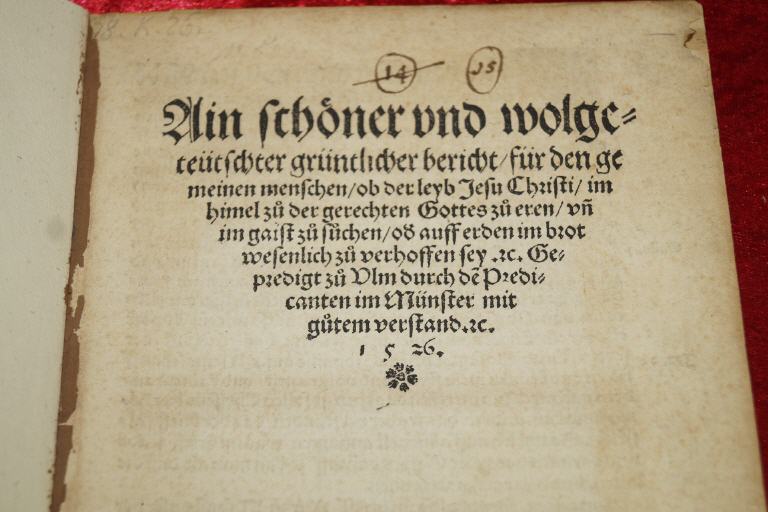 18. K. 26.
14 15
Ain schöner vnd wolge⸗
teütschter grüntlicher bericht/für den ge
meinen menschen/ob der leyb Jesu Christi/ im
himel zů der gerechten Gottes zů eren/ vñ
im gaist zů sůchen/od auff erden im brot
wesenlich zů verhoffen sey .ꝛc. Ge⸗
predigt zů Vlm durch dẽ Predi⸗
canten im Münster mit
gůtem verstand.ꝛc.
1 5 26.